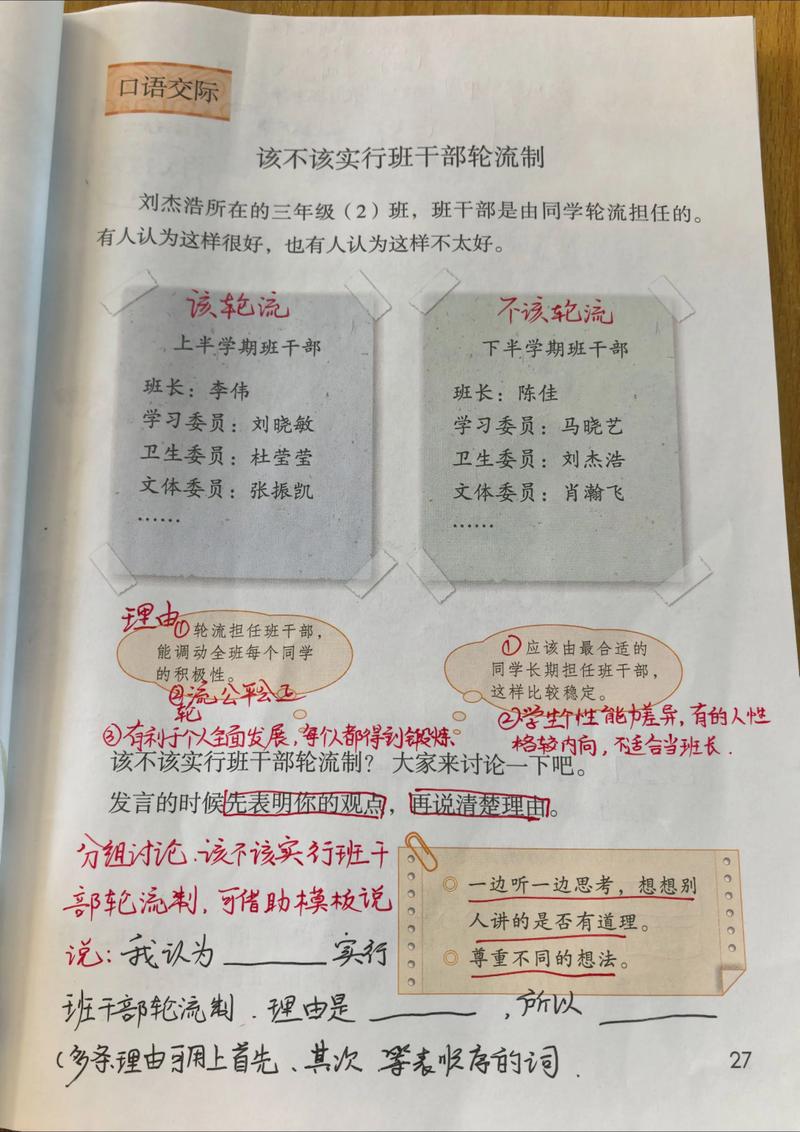 口语交际
该不该实行班干部轮流制
刘杰浩所在的三年级（2）班，班干部是由同学轮流担任的。
有人认为这样很好，也有人认为这样不太好。
该轮流
上半学期班干部
班长：李伟
学习委员：刘晓敏
卫生委员：杜莹莹
文体委员：张振凯
……
不该轮流
下半学期班干部
班长：陈佳
学习委员：马晓艺
卫生委员：刘杰浩
文体委员：肖瀚飞
……
理由
①轮流担任班干部，
能调动全班每个同学
的积极性。
②轮流公平公正
③有利于个人全面发展，每个人都得到锻炼
①应该由最合适的
同学长期担任班干部，
这样比较稳定。
②学生个性能力差异，有的人性
格较内向，不适合当班长.
该不该实行班干部轮流制？大家来讨论一下吧。
发言的时候先表明你的观点，再说清楚理由。
分组讨论.该不该实行班干
部轮流制，可借助模板说
说：我认为______实行
班干部轮流制.理由是______，所以______
（多条理由可用上首先、其次 等表顺序的词.
一边听一边思考，想想别
人讲的是否有道理。
尊重不同的想法。
27